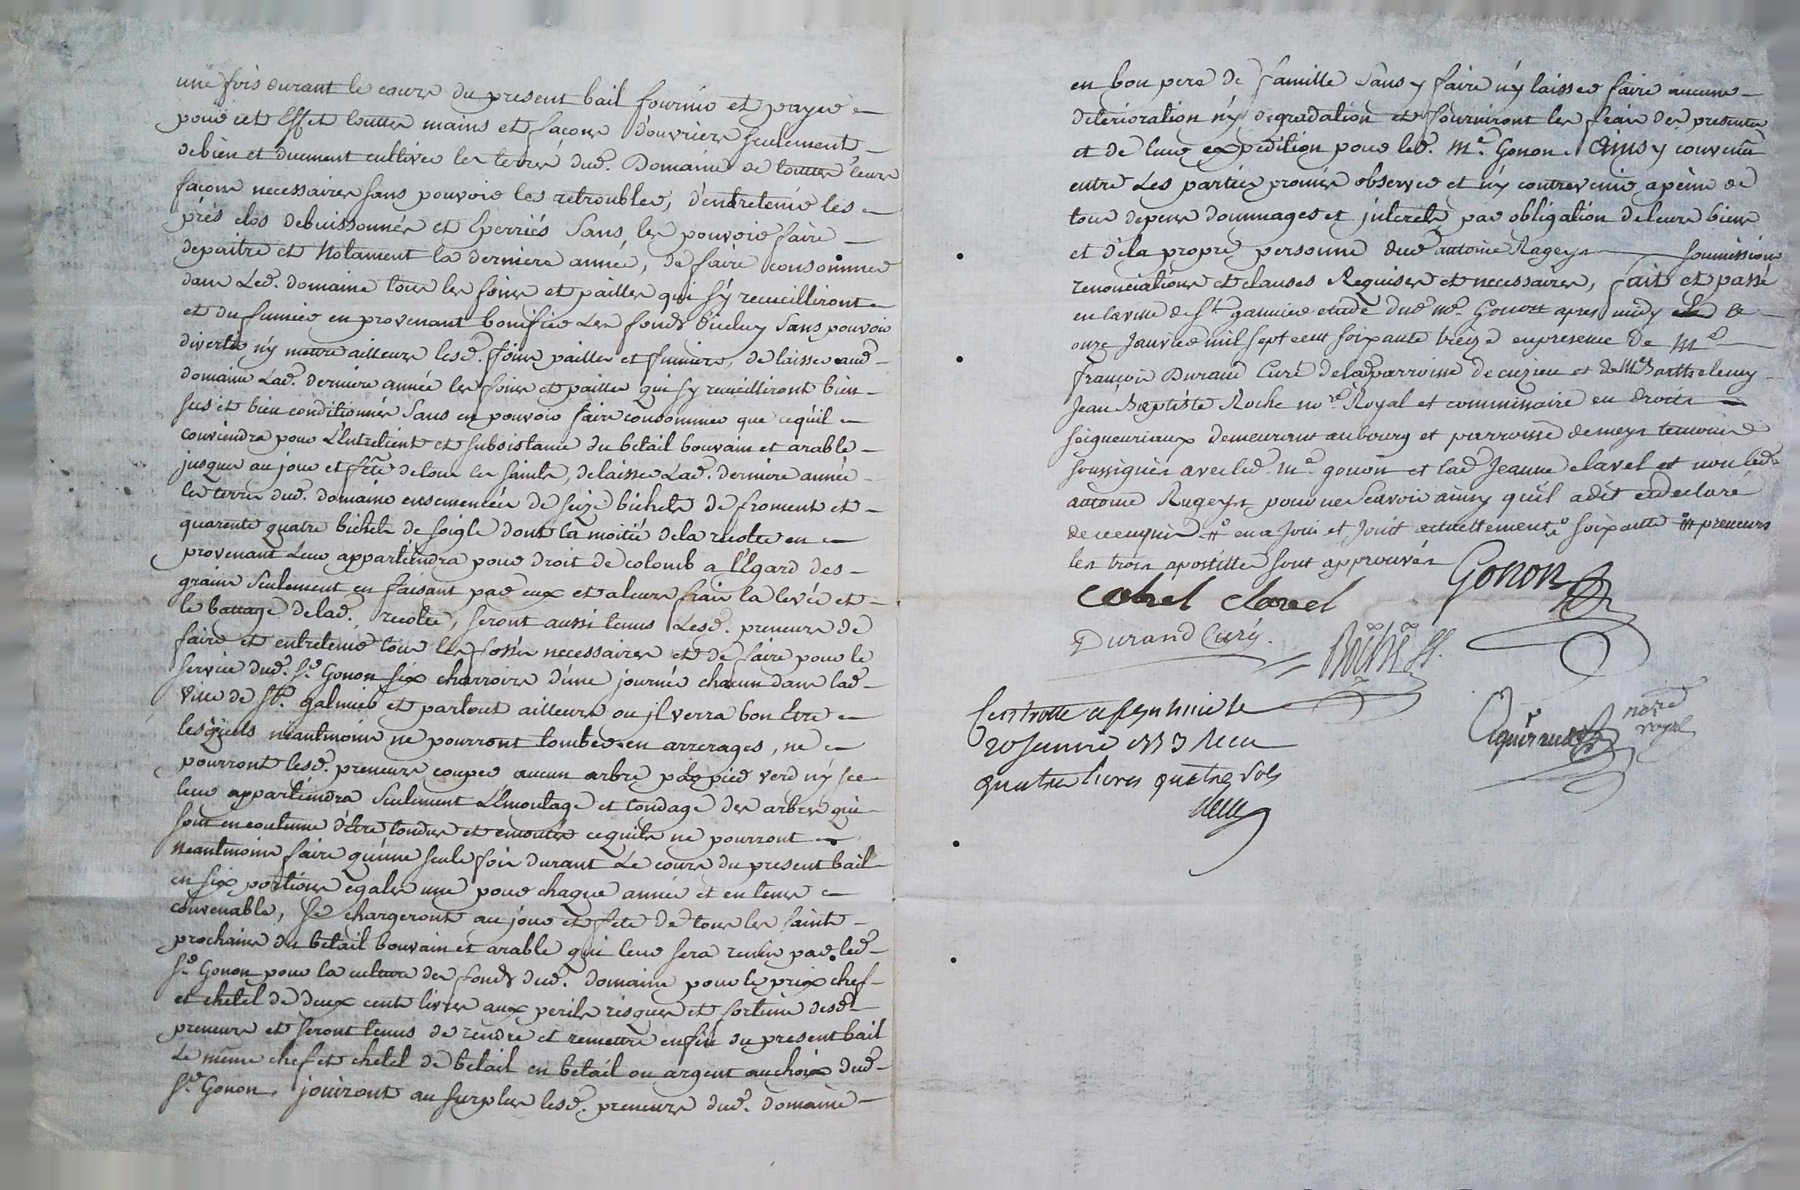 une fois durant le cours du present bail fournir et payer
pour cet Effet touttes mains et façons d'ouvriers seulement
de bien et duement cultiver les terres dud. Domaine de touttes leurs
façons necessaires sans pouvoir les retroubler, d'entretenir les
prés clos debuissonnés et Eperriés sans les pouvoir faire
depaitre et Notament la derniere année, de faire consommer
dans Led. domaine tous les foins et pailles qui s'y recueilliront
et du fumier en provenant bonifier Les fonds d'iceluy sans pouvoir
divertir n'y mettre ailleurs lesd. foins pailles et fumiers, de laisser aud.
domaine Lad. derniere année les foins et pailles qui s'y recueilliront bien
secs et bien conditionnés sans en pouvoir faire consommer que ce qu'il
conviendra pour L'Entretient et subsistance du betail bouvain et arable
jusques au jour et fête de tous les saints, de laisser Lad. derniere année
les terres dud. domaine ensemencées de seize bichets de froment et
quarente quatre bichets de seigle dont la moitié de la recolte en
provenant Leur appartiendra pour droit de colomb a l'Egard des
grains seulement en faisant par eux et a leurs frais la levée et
le battage de lad. recolte, seront aussi tenus Lesd. preneurs de
faire et entretenir tous les fossés necessaires et de faire pour le
service dud. Sr. Gonon six charroirs d'une journée chacun dans lad.
ville de St. galmier et partout ailleurs ou jl verra bon Etre
lesquels néantmoins ne pourront tomber en arrerages, ne
pourront lesd. preneurs couper aucun arbre par pied verd n'y sec
leur appartiendra seulement L'Emontage et tondage des arbres qui
sont en coutume d'être tondus et emontés ce quils ne pourront
Neantmoins faire qu'une seule fois durant Le cours du present bail
en six portions egales une pour chaque année et en tems
convenable, se chargeront au jour et fete de tous les saints
prochains du betail bouvain et arable qui leur sera remis par led.
Sr. Gonon pour la culture des fonds dud. domaine pour le prix chef
et chetel de deux cents livres aux perils risques et fortune desd.
preneurs et seront tenus de rendre et remettre en fin du present bail
Le même chef et chetel de betail en betail ou argent au choix dud.
Sr. Gonon, jouiront au surplus lesd. preneurs dud. domaine
en bon pere de famille sans y faire n'y laisser faire aucune
deterioration n'y degradation et fourniront les frais des presentes
et de leur expedition pour led. Me. Gonon. Ainsy convenu
entre Les parties promis observer et n'y contrevenir a peine de
tous depens dommages et jnterets par obligation de leurs biens
et de la propre personne dud. antoine Rageys soumissions
renonciations et clauses Requises et necessaires, fait et passé
en la ville de St. galmier etude dud. me. Gonon apres midy le
onze Janvier mil sept cent soixante treize en presence de Me.
françois Durand Curé de la parroisse de cuzieu et de Me. Barthelemy
Jean Baptiste Roche nore. Royal et commissaire en droits
seigneuriaux demeurant au bourg et parroisse de meys temoins
soussignés avec led. me. gonon et lad. Jeanne clavel et non led.
antoine Rageys pour ne sçavoir ainsy qu'il a dit et declaré
de ce enquis en a Joui et Jouit actuellement soixante preneurs
les trois apostilles sont approuvés
Gonon
clavel
Durand Curé.
Roche
Controllé a St. galmier le
20 Janvier 1773 Reçu
quatre livres quatre sols
nore
royal